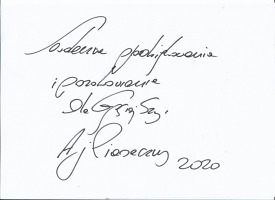 Serdeczne podziękowania
i pozdrowienia
dla
A. J. Piaseczny 2020